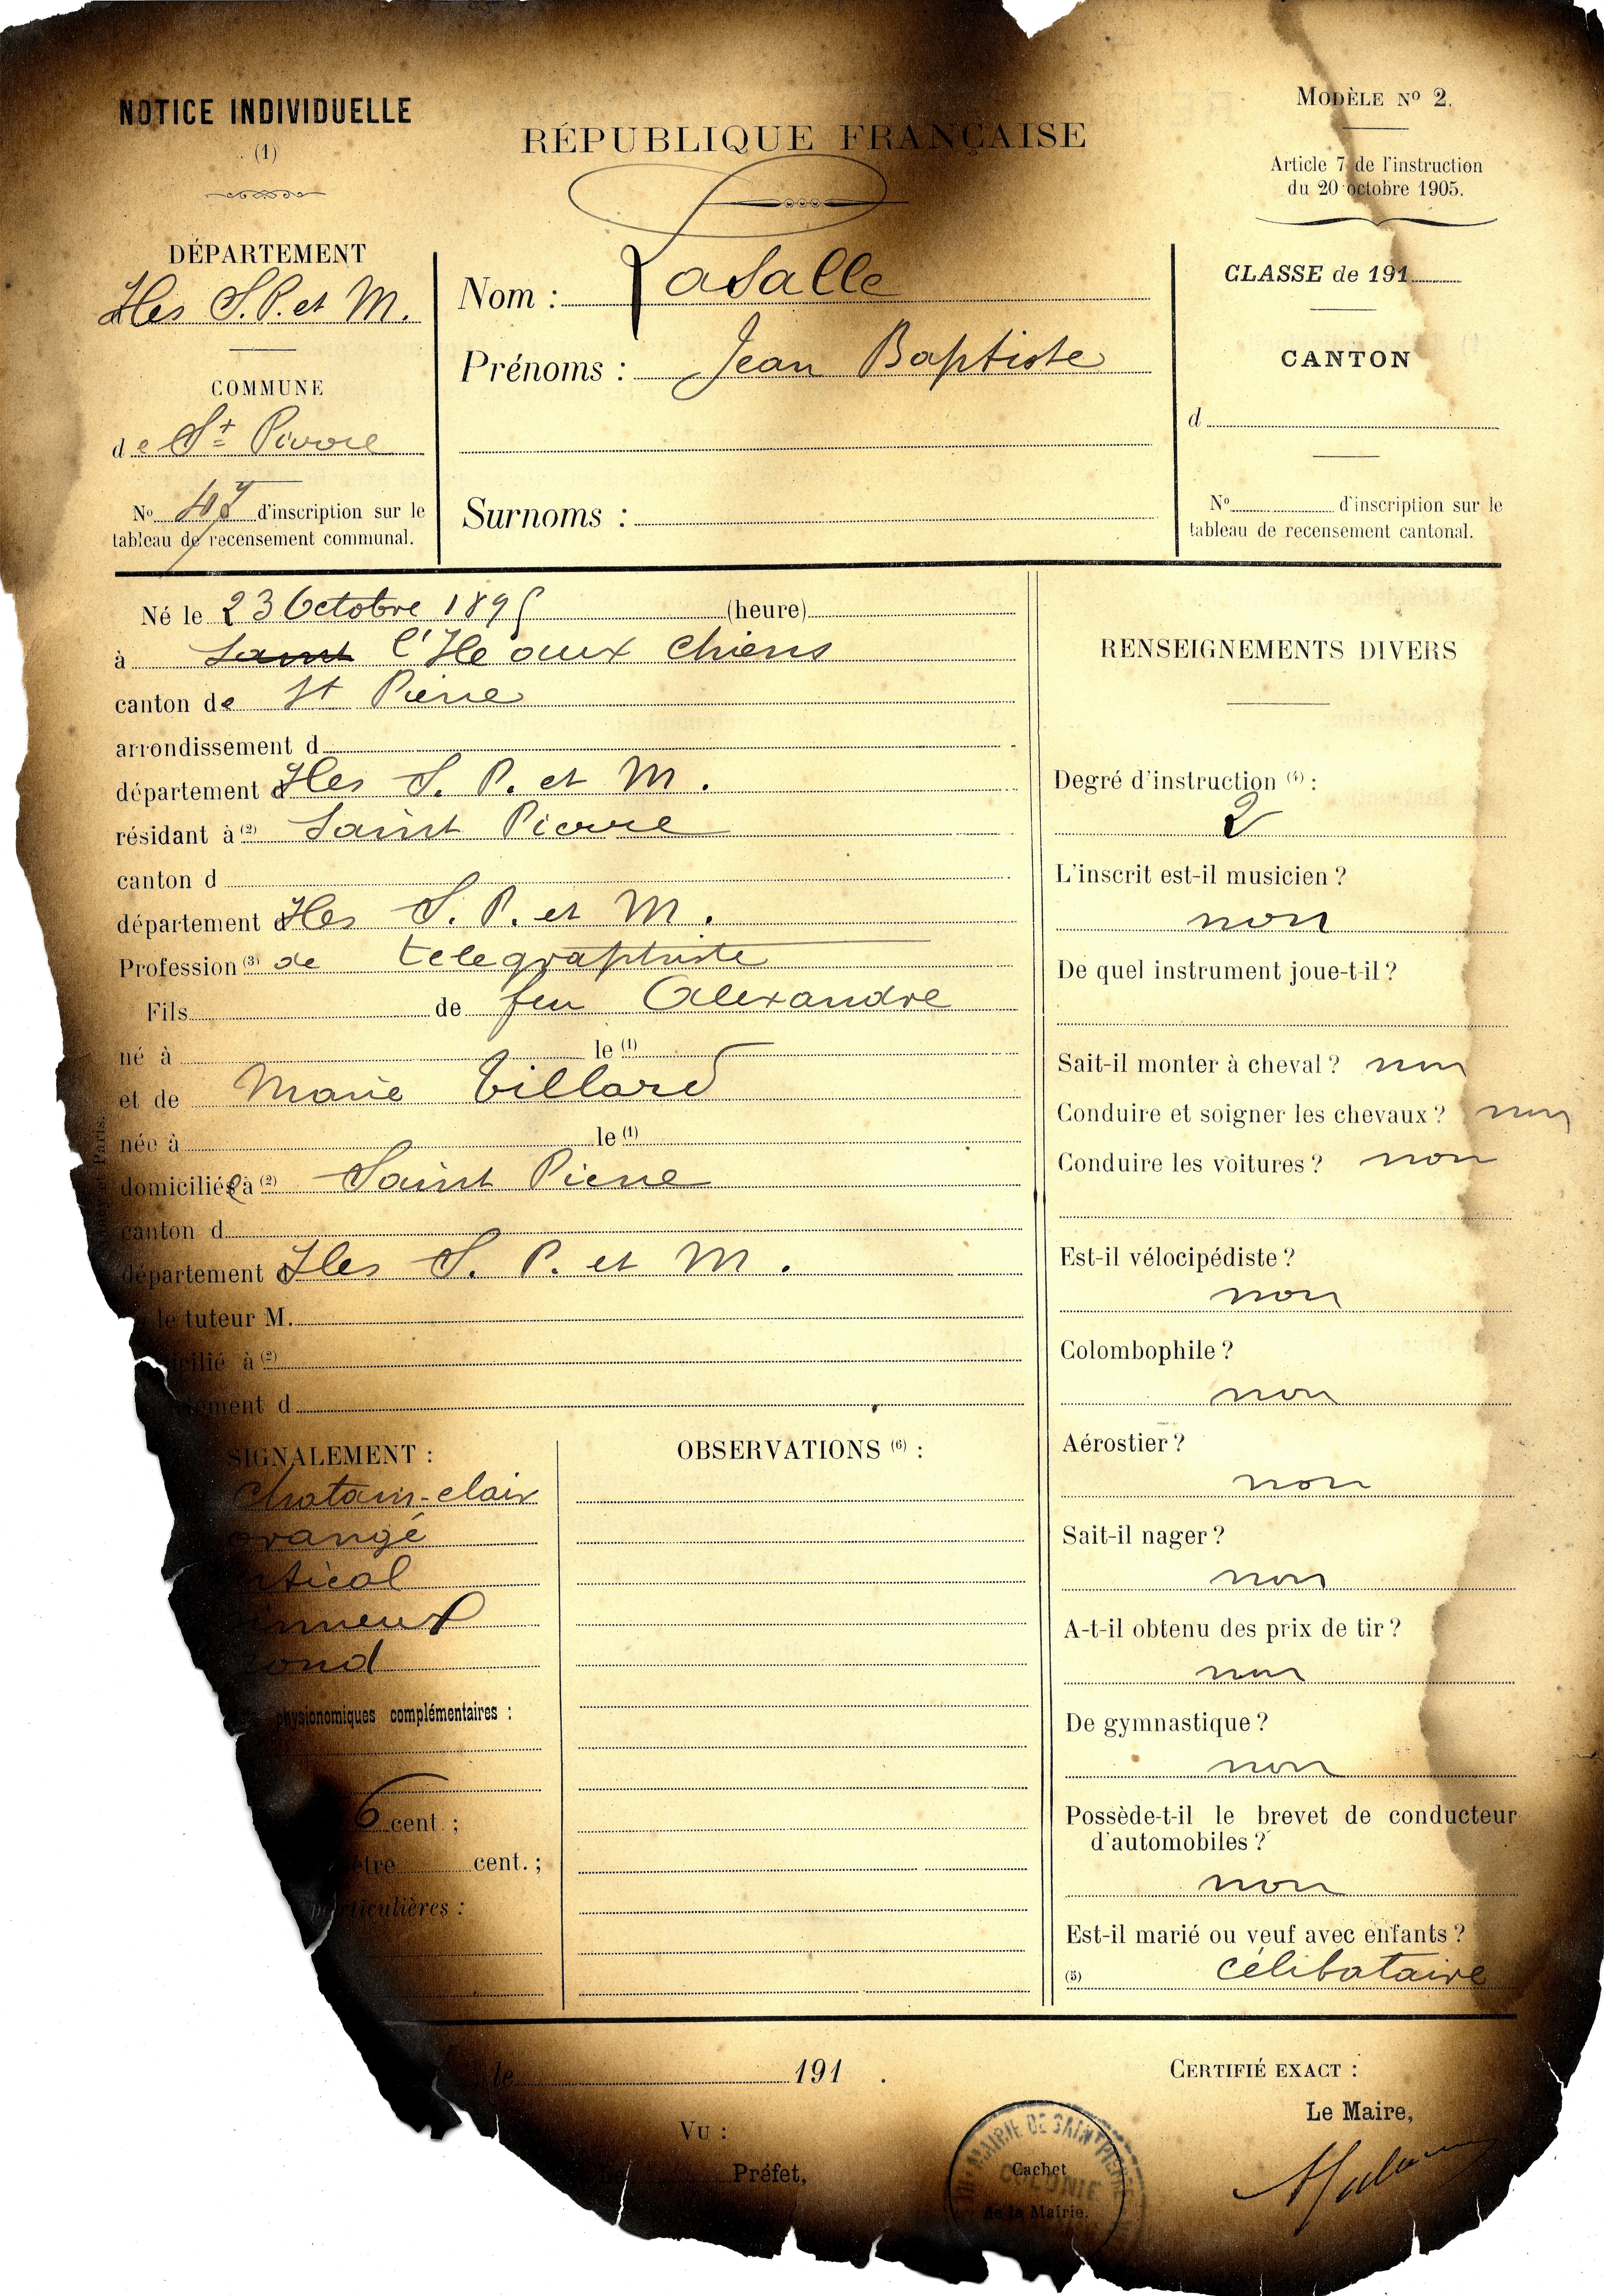 NOTICE INDIVIDUELLE
(1)
RÉPUBLIQUE FRANÇAISE
MODÈLE No 2.
Article 7 de l'instruction
du 20 octobre 1905.
DÉPARTEMENT
Iles S. P. et M.
COMMUNE
de St Pierre
No d'inscription sur le
tableau de recensement communal.
Nom : Lasalle
Prénoms : Jean Baptiste
Surnoms :
CLASSE de 191
CANTON
d
No d'inscription sur le
tableau de recensement cantonal.
Né le 23 Octobre 1895 (heure)
à Saint l'Ile aux Chiens
canton de St Pierre
arrondissement d
département d Iles S. P. et M.
résidant à (2) Saint Pierre
canton d
département d Iles S. P. et M.
Profession (3) de telegraphiste
Fils de feu Alexandre
né à le (1)
et de Marie Tillard
née à le (1)
domiciliée à (2) Saint Pierre
canton d
département d Iles S. P. et M.
le tuteur M.
icilié à (2)
ement d
SIGNALEMENT :
Chatain-clair
orangé
rtical
ond
physionomiques complémentaires :
6 cent. ;
ètre cent. ;
particulières :
OBSERVATIONS (6) :
RENSEIGNEMENTS DIVERS
Degré d'instruction (4) :
2
L'inscrit est-il musicien ?
non
De quel instrument joue-t-il ?
Sait-il monter à cheval ? non
Conduire et soigner les chevaux ? non
Conduire les voitures ? non
Est-il vélocipédiste ?
non
Colombophile ?
non
Aérostier ?
non
Sait-il nager ?
non
A-t-il obtenu des prix de tir ?
non
De gymnastique ?
non
Possède-t-il le brevet de conducteur
d'automobiles ?
non
Est-il marié ou veuf avec enfants ?
(5) célibataire
le 191 .
VU :
Préfet,
MAIRIE DE SAINT PIERRE
COLONIE
Cachet
de la Mairie.
CERTIFIÉ EXACT :
Le Maire,
Paris.